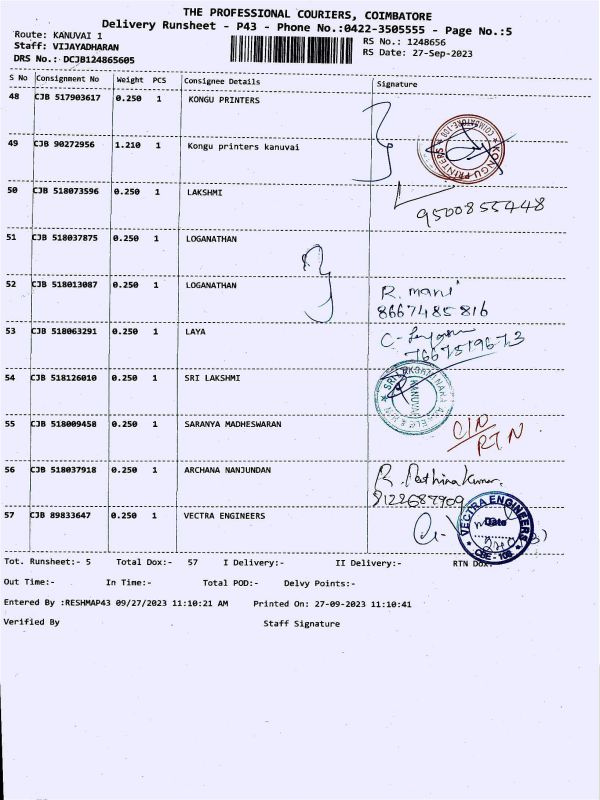 THE PROFESSIONAL COURIERS, COIMBATORE
Delivery Runsheet - P43 - Phone No.:0422-3505555 - Page No.:5
Route: KANUVAI 1
Staff: VIJAYADHARAN
DRS No.: DCJB124865605
RS No.: 1248656
RS Date: 27-Sep-2023
S No Consignment No Weight PCS Consignee Details Signature
48 CJB 517903617 0.250 1 KONGU PRINTERS
49 CJB 90272956 1.210 1 Kongu printers kanuvai
KONGU PRINTERS
50 CJB 518073596 0.250 1 LAKSHMI
9500855448
51 CJB 518037875 0.250 1 LOGANATHAN
52 CJB 518013087 0.250 1 LOGANATHAN
R. mani
8667485816
53 CJB 518063291 0.250 1 LAYA
7667519673
54 CJB 518126010 0.250 1 SRI LAKSHMI
KANUVAI
55 CJB 518009458 0.250 1 SARANYA MADHESWARAN
RTN
56 CJB 518037918 0.250 1 ARCHANA NANJUNDAN
R. Rathina Kumar.
8122687909
57 CJB 89833647 0.250 1 VECTRA ENGINEERS
VECTRA ENGINEERS
Date
CBE - 108
Tot. Runsheet:- 5 Total Dox:- 57 I Delivery:- II Delivery:- RTN Dox:
Out Time:- In Time:- Total POD:- Delvy Points:-
Entered By :RESHMAP43 09/27/2023 11:10:21 AM Printed On: 27-09-2023 11:10:41
Verified By Staff Signature